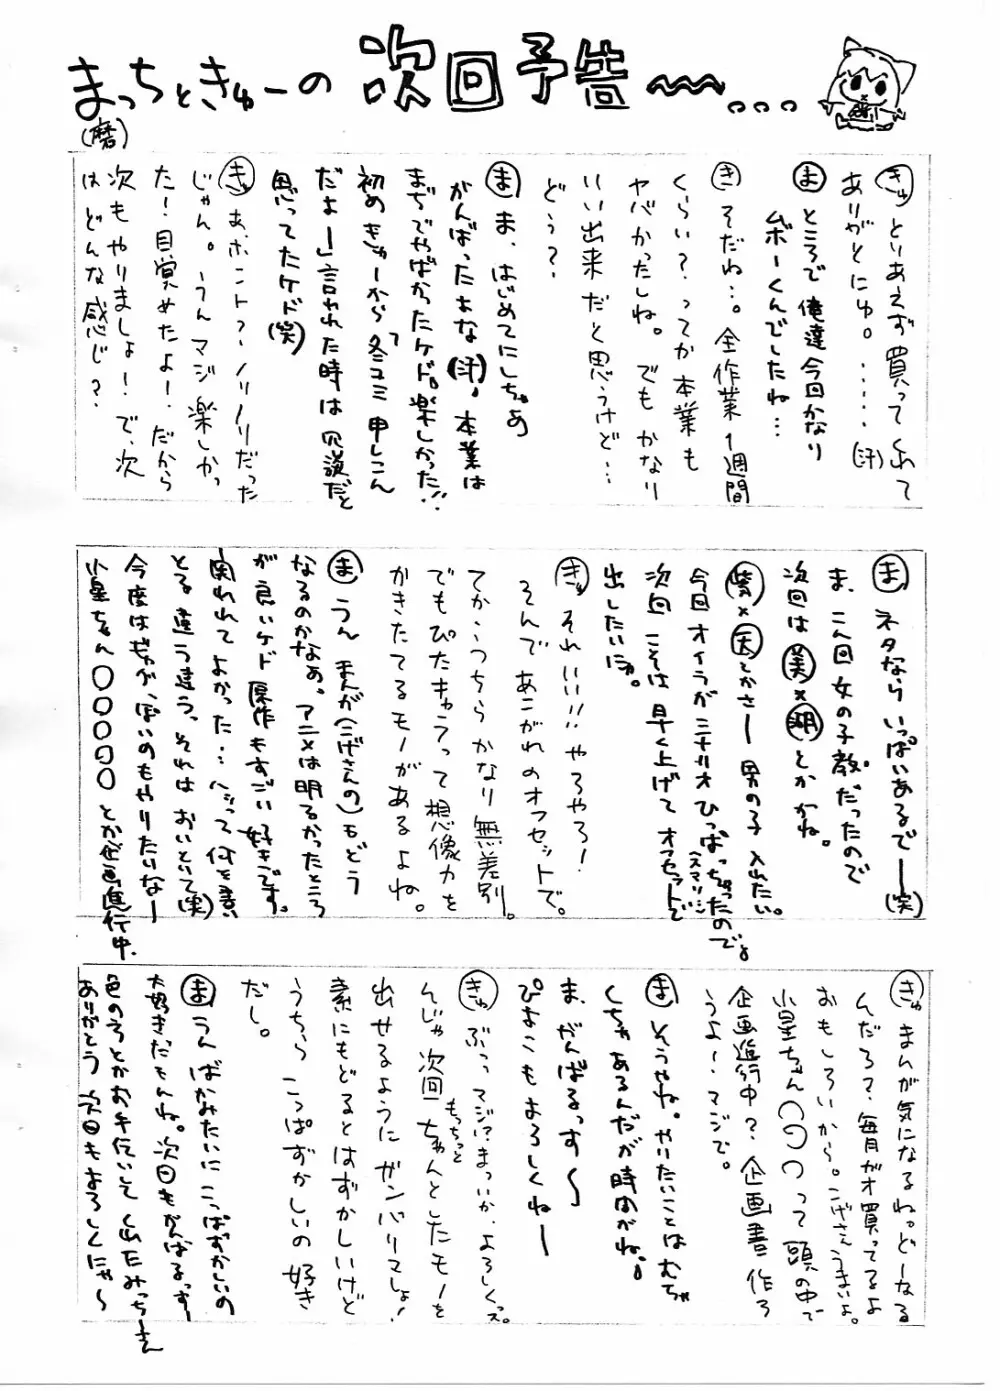 まっちときゅーの 次回予告〜...
(磨)
きゅ とりあえず買ってくれて
ありがとにゅ。……(汗)
ま ところで俺達今回かなり
ムボーくんでしたね…
き そだね…。全作業1週間
くらい?ってか本業も
ヤバかったしね。でもかなり
いい出来だと思うけど…
どぅ?
ま ま、はじめてにしちゃあ
がんばったよな(汗)。本業は
まぢでやばかったケド。楽しかった!!
初めきゅーから「冬コミ申しこん
だよー」言われた時は冗談だと
思ってたケド(笑)
きゅ あ、ホント?ノリノリだった
じゃん。うんマジ楽しかっ
た!目覚めたよー!だから
次もやりましょ!で、次
はどんな感じ?
ま ネタならいっぱいあるでー(笑)
ま、こん回女の子教だったので
次回は美×湖とかかね。
紫×天とかさー 男の子入れたい。
今回オイラがシナリオひっぱっちゃったので。
(スマソ)
次回こそは早く上げてオフセットで
出したいにゃ。
きゅ それいい!!!やろやろ!
そんであこがれのオフセットで。
てか、うちらかなり無差別。
でもぴたキュラって想像力を
かきたてるモノがあるよね。
ま うん まんが(こげさんの)もどう
なるのかなぁ。アニメは明るかったところ
が良いケド原作もすごい好きです。
関われてよかった…へって何を言い
とる 違う違う。それはおいといて(笑)
今度はギャグっぽいのもやりたいなー
小星ちゃん〇〇〇〇〇とか企画進行中.
きゅ まんが気になるね。どーなる
んだろ?毎月がオ買ってるよ
おもしろいから。こげさんうまいよ。
小星ちゃん〇〇〇って頭の中で
企画進行中?企画書作ろ
うよー!マジで。
ま そうやね。やりたいことはむちゃ
くちゃあるんだが時間がね。
ま、がんばるっす〜
ぴよこもよろしくねー
きゅ ぶっ マジ!?まっいか、よろしくっス。
んじゃ次回もちっとちゃんとしたモノを
出せるようにガンバリマしょ!
素にもどるとはずかしいけど
うちらこっぱずかしいの好き
だし。
ま うん ばかみたいにこっぱずかしいの
大好きだもんね。次回もがんばるっすー
色のろとかお手伝いしてくれたみっちーさん
ありがとう 次回もよろしくにゃ〜